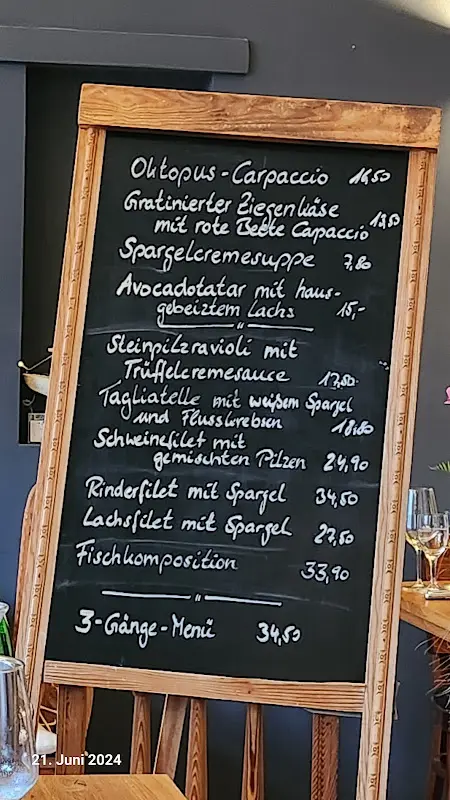 Oktopus-Carpaccio 14,50
Gratinierter Ziegenkäse
mit rote Beete Capaccio 13,50
Spargelcremesuppe 7,80
Avocadotatar mit haus-
gebeiztem Lachs 15,-
Steinpilzravioli mit
Trüffelcremesauce 17,50
Tagliatelle mit weißem Spargel
und Flusskrebsen 18,80
Schweinefilet mit
gemischten Pilzen 24,90
Rinderfilet mit Spargel 34,50
Lachsfilet mit Spargel 27,50
Fischkomposition 33,90
3-Gänge-Menü 34,50
21. Juni 2024